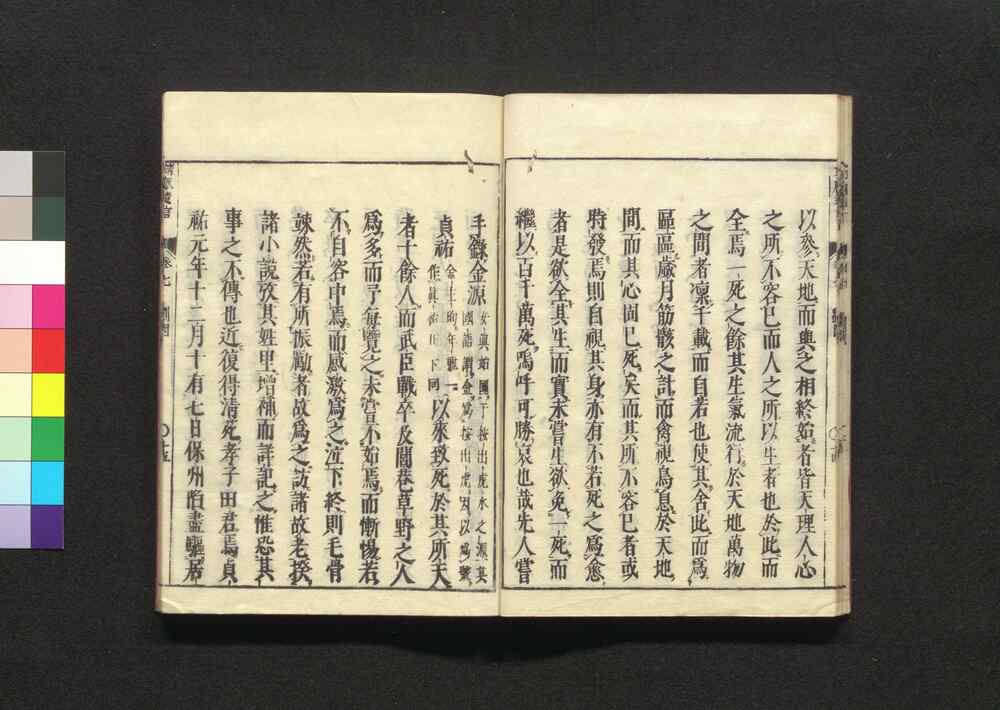 以參天地而與之相終始者皆天理人心
之所不容已而人之所以生者也於此而
全焉一死之餘其生氣流行於天地萬物
之間者凛千載而自若也使其舍此而爲
區區歲月筋骸之計而禽視鳥息於天地
間而其心固已死矣而其所不容已者或
時發焉則自視其身亦有不若死之爲愈
者是欲全其生而實未嘗生欲免一死而
繼以百千萬死嗚呼可勝哀也哉先人嘗
手錄金源
女眞始國于按出虎水之源其
國語謂金爲按出虎因以爲號
貞祐
以來致死於其所天
者十餘人而武臣戰卒及閭巷草野之人
爲多而予每覽之未嘗不始焉而慚惕若
不自容中焉而感激爲之泣下終則毛骨
竦然若有所振勵者故爲之訪諸故老揆
諸小說攷其姓里增補而詳記之惟恐其
事之不傳也近復得清死孝子田君焉貞
祐元年十二月十有七日保州陷盡驅居
卷七